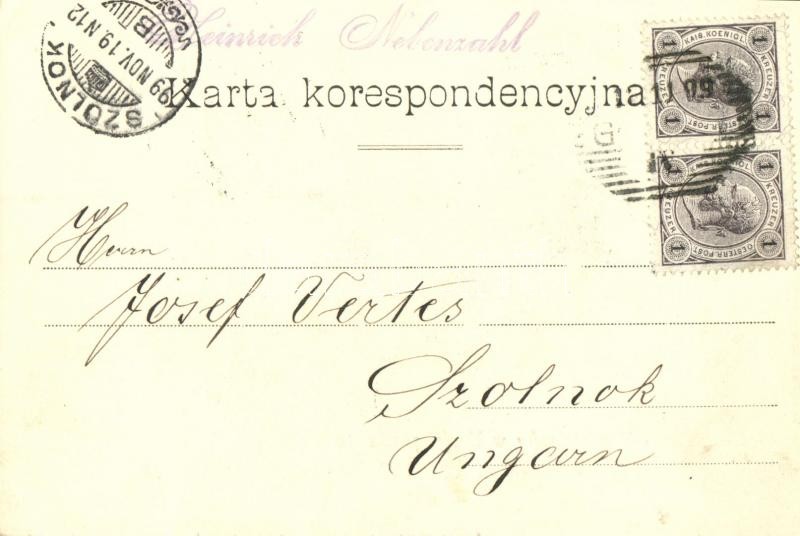 Heinrich Nebenzahl
SZOLNOK
99 NOV. 19. N12
B
Karta korespondencyjna
Herrn
Josef Vertes
Szolnok
Ungarn
KAIS. KOENIGL.
1 1
KREUZER KREUZER
1 1
OESTERR. POST.
KAIS. KOENIGL.
1 1
KREUZER KREUZER
1 1
OESTERR. POST.